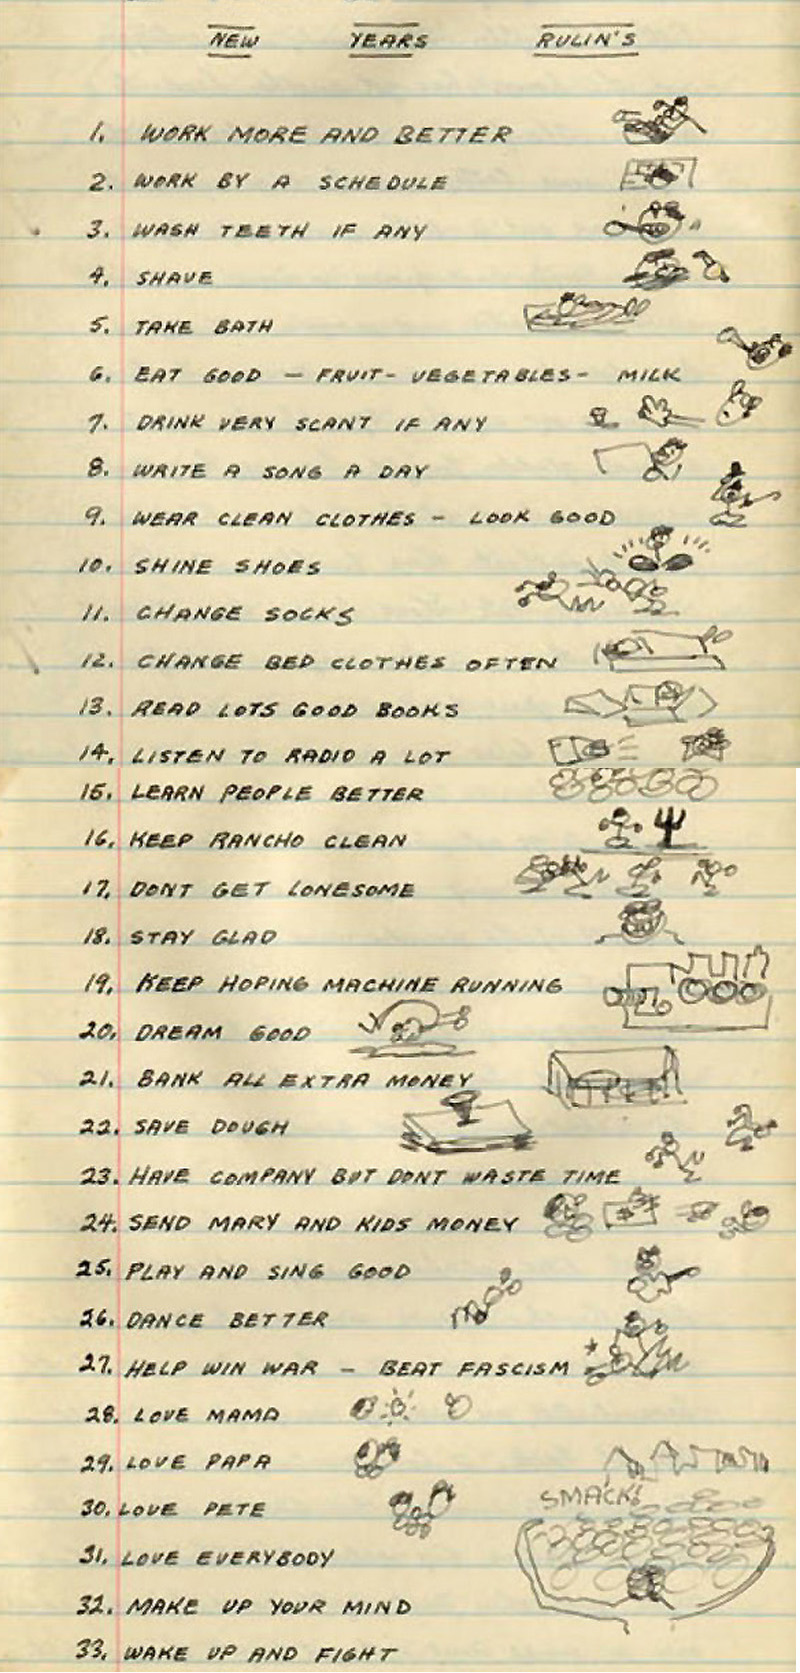 NEW YEARS RULIN'S
1. WORK MORE AND BETTER
2. WORK BY A SCHEDULE
3. WASH TEETH IF ANY
4. SHAVE
5. TAKE BATH
6. EAT GOOD — FRUIT - VEGETABLES - MILK
7. DRINK VERY SCANT IF ANY
8. WRITE A SONG A DAY
9. WEAR CLEAN CLOTHES — LOOK GOOD
10. SHINE SHOES
11. CHANGE SOCKS
12. CHANGE BED CLOTHES OFTEN
13. READ LOTS GOOD BOOKS
14. LISTEN TO RADIO A LOT
15. LEARN PEOPLE BETTER
16. KEEP RANCHO CLEAN
17. DONT GET LONESOME
18. STAY GLAD
19. KEEP HOPING MACHINE RUNNING
20. DREAM GOOD
21. BANK ALL EXTRA MONEY
22. SAVE DOUGH
23. HAVE COMPANY BUT DONT WASTE TIME
24. SEND MARY AND KIDS MONEY
25. PLAY AND SING GOOD
26. DANCE BETTER
27. HELP WIN WAR — BEAT FASCISM
28. LOVE MAMA
29. LOVE PAPA
SMACK!
30. LOVE PETE
31. LOVE EVERYBODY
32. MAKE UP YOUR MIND
33. WAKE UP AND FIGHT